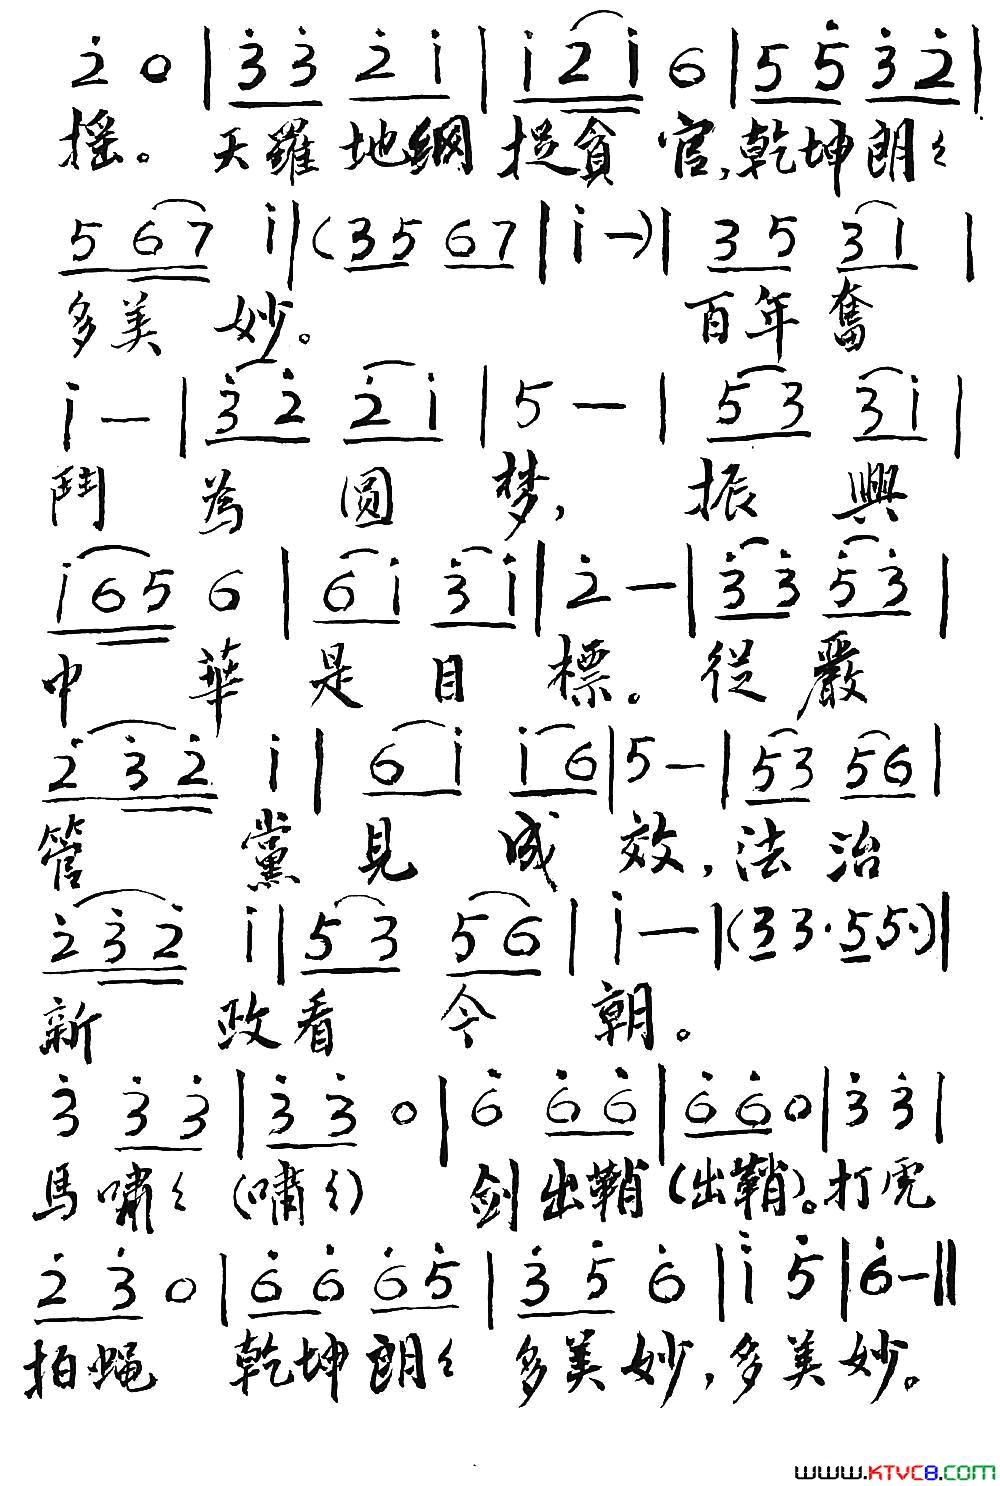 2̇ 0 | 3̇ 3̇ 2̇ 1̇ | 1̇ 2̇ 1̇ 6 | 5 5̇ 3̇ 2̇ |
摇。 天羅地網捉貪官,乾坤朗〻
5 6 7 1̇ | (3 5 6 7 | 1̇ —) | 3 5 3 1 |
多美妙。 百年奮
1̇ — | 3̇ 2̇ 2̇ 1̇ | 5 — | 5 3 3 1̇ |
鬥為圆梦,振興
1̇ 6 5 6 | 6 1̇ 3̇ 1̇ | 2̇ — | 3̇ 3̇ 5̇ 3̇ |
中華是目標。從嚴
2̇ 3̇ 2̇ 1̇ | 6 1̇ 1̇ 6 | 5 — | 5 3 5 6 |
管黨見成效,法治
2̇ 3̇ 2̇ 1̇ | 5 3 5 6 | 1̇ — | (3 3· 5 5·) |
新政看今朝。
3̇ 3̇ 3̇ | 3̇ 3̇ 0 | 6̇ 6̇ 6̇ | 6̇ 6̇ 0 | 3̇ 3̇ |
馬嘯〻(嘯〻) 剑出鞘(出鞘)。打虎
2̇ 3̇ 0 | 6̇ 6̇ 6̇ 5̇ | 3̇ 5̇ 6̇ | 1̇ 5̇ | 6̇ — ‖
拍蝇 乾坤朗〻 多美妙,多美妙。
www.KTVC8.com